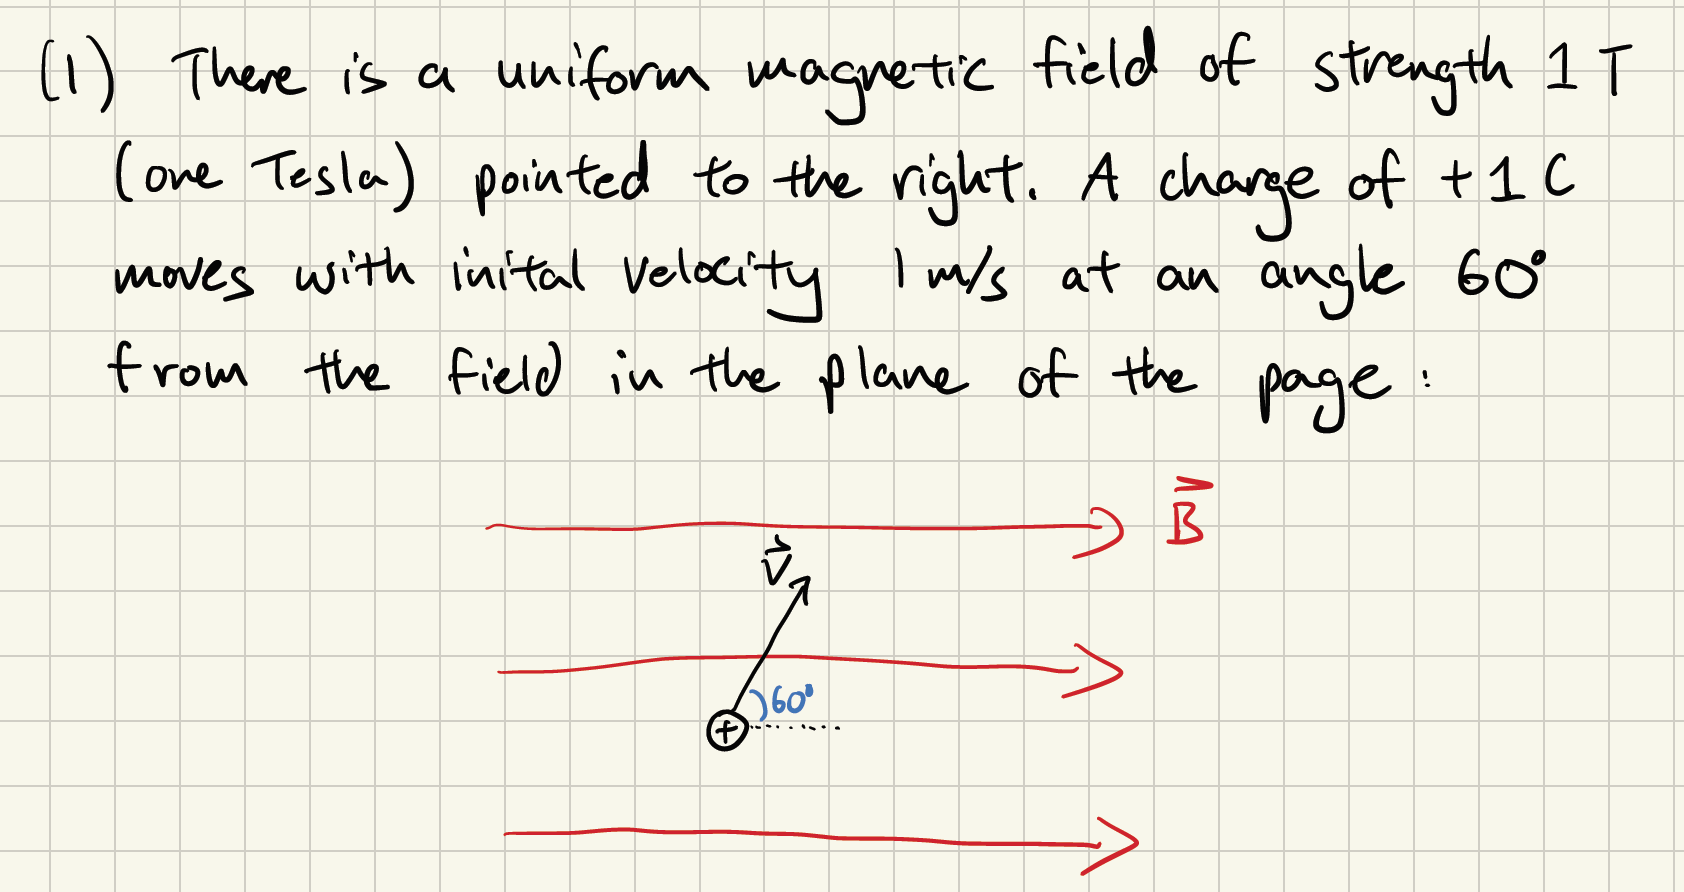 (1) There is a uniform magnetic field of strength 1 T
(one Tesla) pointed to the right. A charge of +1 C
moves with inital velocity 1 m/s at an angle 60°
from the field in the plane of the page:
B⃗
v⃗
60°
+